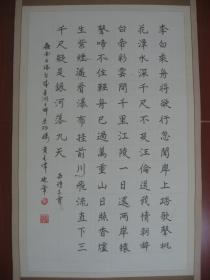 李白乘舟將欲行忽聞岸上踏歌聲桃
花潭水深千尺不及汪倫送我情朝辭
白帝彩雲間千里江陵一日還兩岸猿
聲啼不住輕舟已過萬重山日照香爐
生紫煙遙看瀑布挂前川飛流直下三
千尺疑是銀河落九天